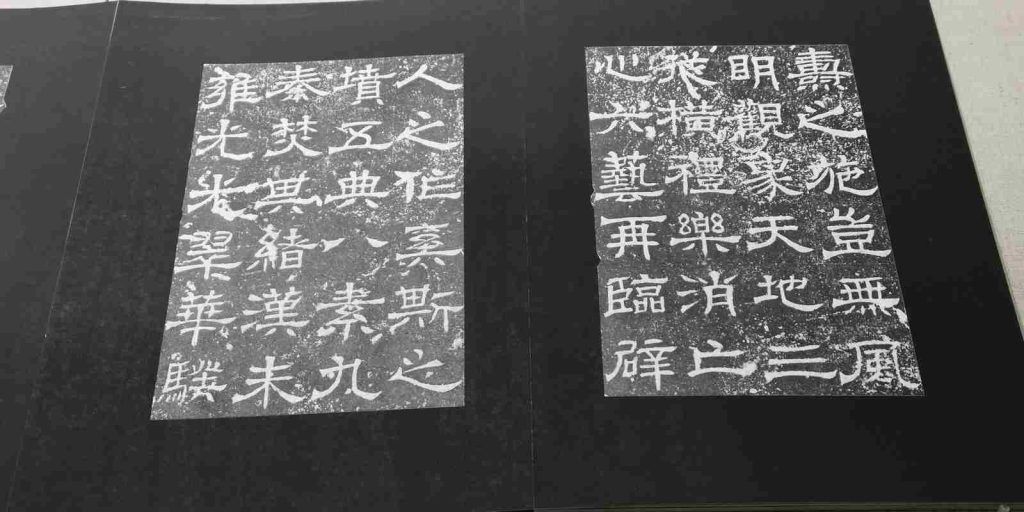 壽之施豈無風
明觀象天地三
從橫禮樂消亡
心六藝再臨辟
人之作奚斯之
墳五典八素九
秦焚其緒漢未
雍光光翠華驥